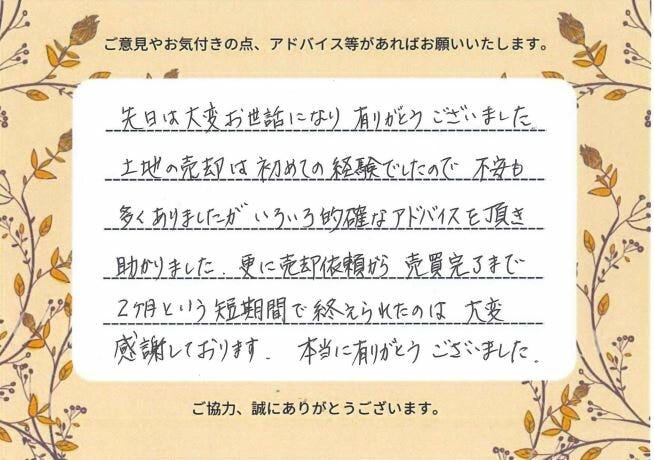 ご意見やお気付きの点、アドバイス等があればお願いいたします。
先日は大変お世話になり 有りがとうございました。
土地の売却は初めての経験でしたので 不安も
多くありましたが いろいろ的確なアドバイスを頂き
助かりました. 更に売却依頼から 売買完了まで
2ヶ月という短期間で終えられたのは 大変
感謝しております. 本当に有りがとうございました.
ご協力、誠にありがとうございます。